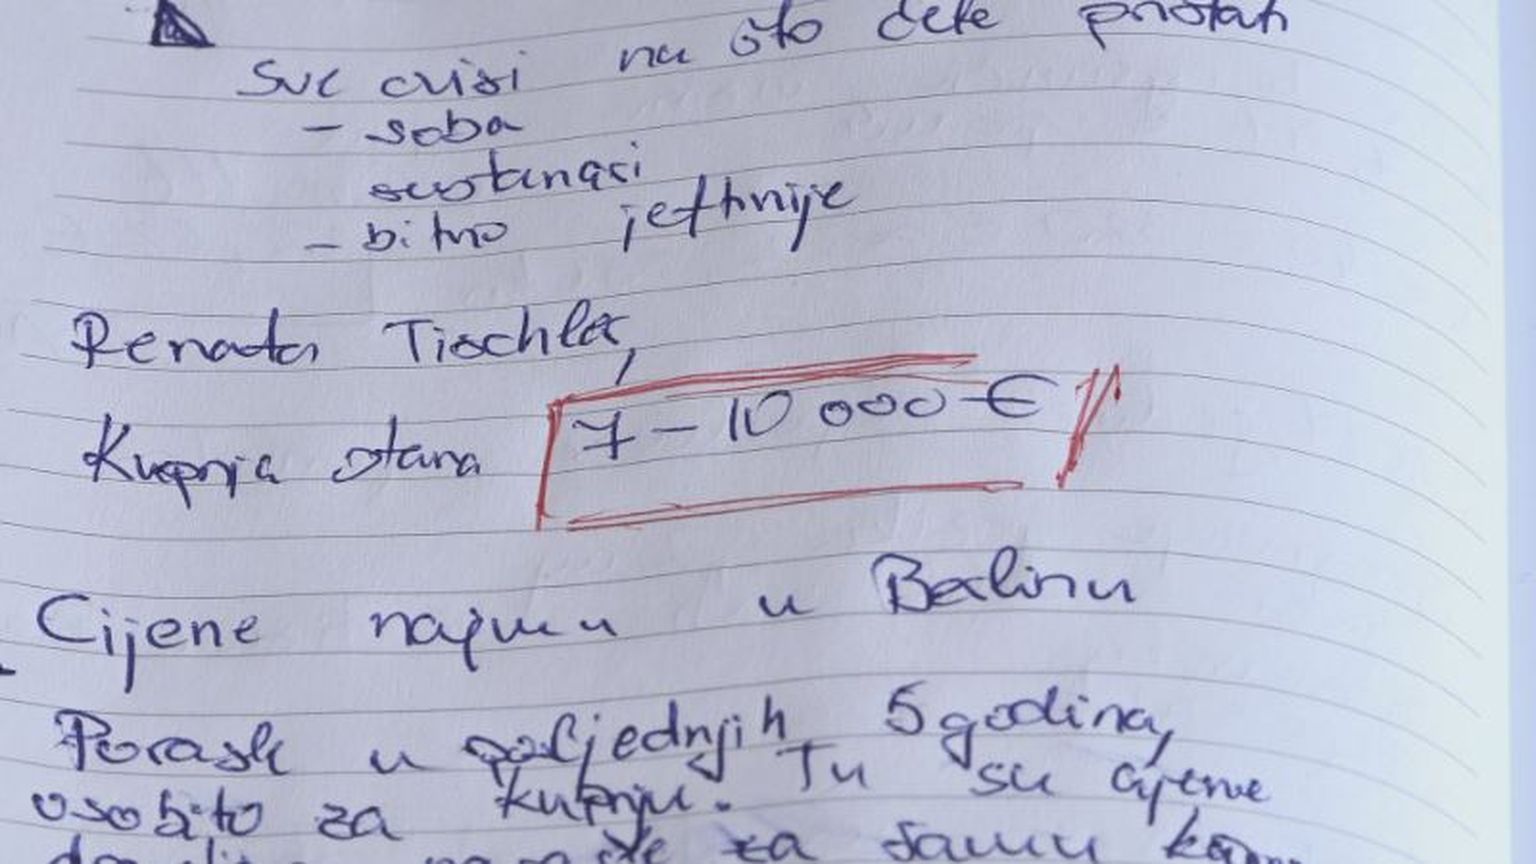 Sve ovisi na što ćete pristati
- soba
sustanari
- bitno jeftinije
Renata Tischler,
Kupnja stana 7 - 10 000 €
Cijene najma u Berlinu
Porast u posljednjih 5 godina,
osobito za kupnju. Tu su cijene
za samu